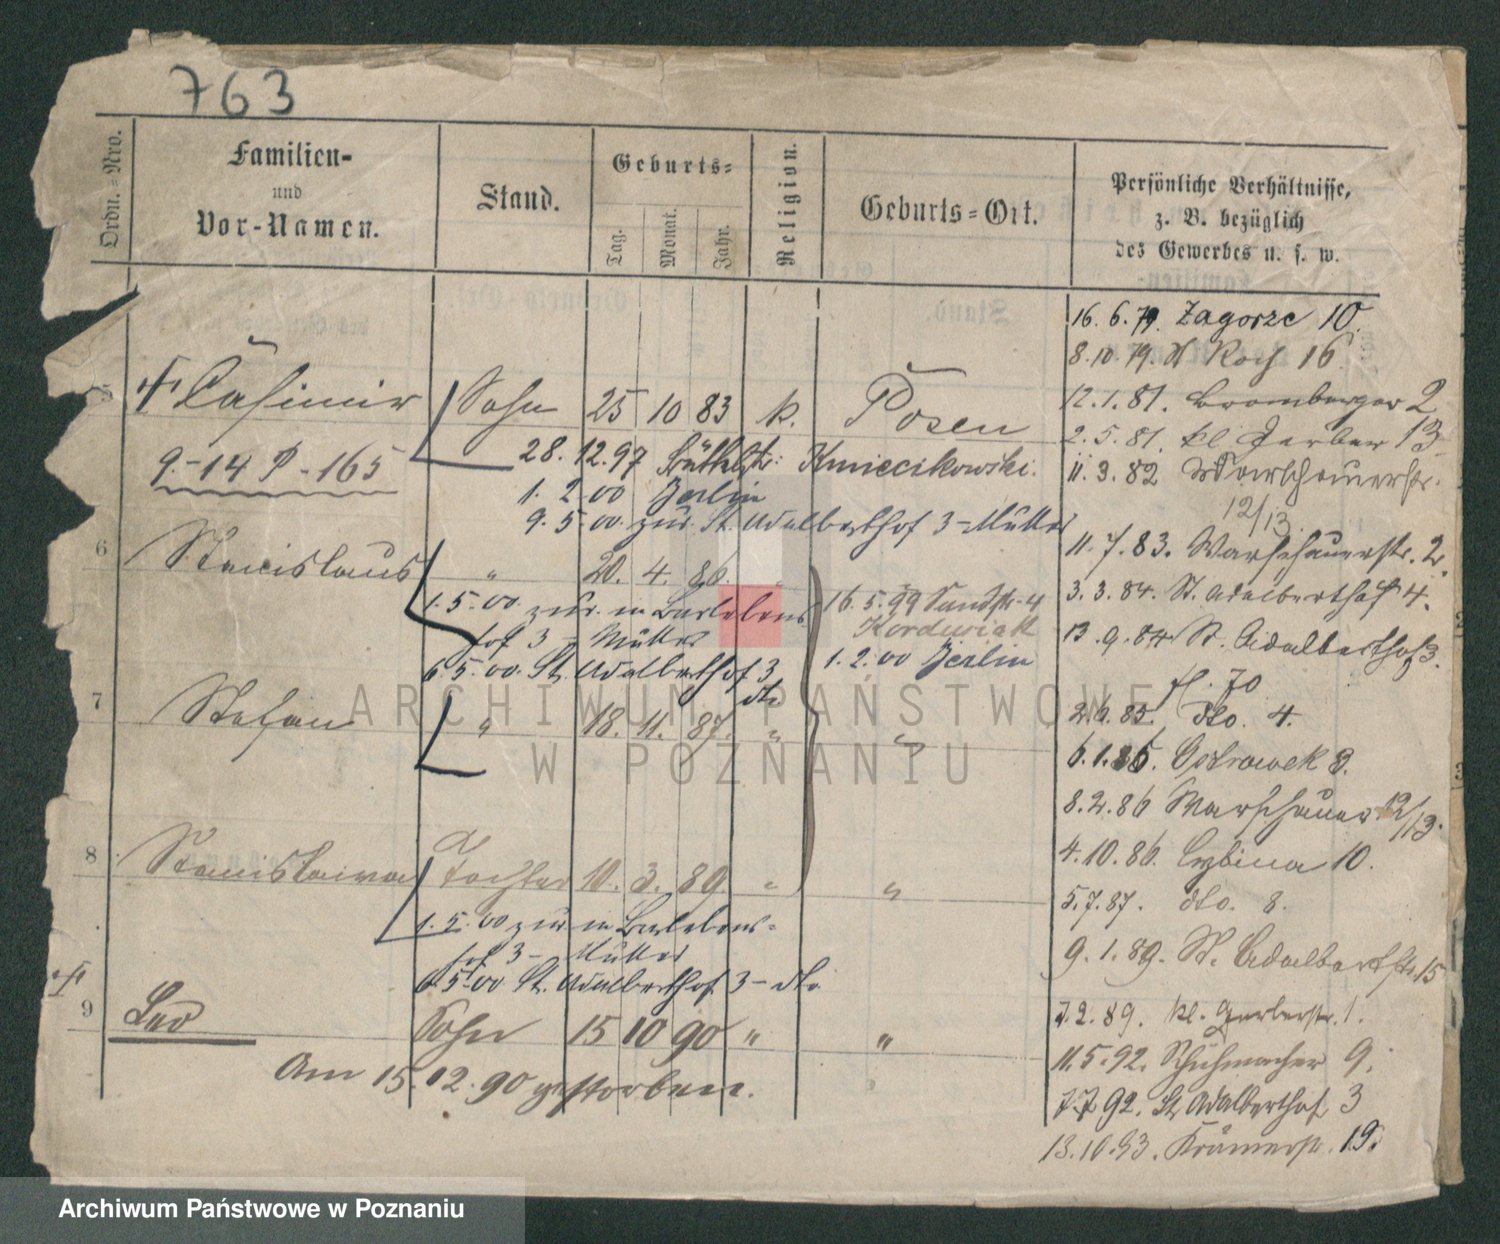 763
Ordn.=Nro.
Familien-
und
Vor-Namen.
Stand.
Geburts=
Tag.
Monat.
Jahr.
Religion.
Geburts=Ort.
Persönliche Verhältnisse,
z. B. bezüglich
des Gewerbes u. s. w.
5 Casimir Sohn 25 10 83 k. Posen
9.-14 P - 165
28. 12. 97 Kmiecikowski.
1. 2. 00 Berlin
9. 5. 00. zur. St. Adalberthof 3 - Mutter
6 Stanislaus " 20. 4. 86.
1. 5. 00 zur. in Bartlebens
hof 3 - Mutter
6. 5. 00. St. Adalberthof 3
dto
16. 5. 99 Sandstr. 4
Korduriak
1. 2. 00 Berlin
7 Stefan " 18. 11. 87. " "
8 Stanislawa Tochter 10. 3. 89 " "
1. 5. 00 zur in Bartlebens=
hof 3 - Mutter
6. 5. 00 St. Adalberthof 3 - dto
9 Leo Sohn 15 10 90 " "
Am 15. 12. 90 gestorben.
16. 6. 79. Zagorze 10.
8. 10. 79. Roch 16
12. 1. 81. Bromberger 2
2. 5. 81. kl Gerber 13
11. 3. 82 Warschauerstr.
12/13.
11. 7. 83. Warschauerstr. 2.
3. 3. 84. St. Adalberthof 4.
13. 9. 84 St. Adalberthof 3.
fl. 70
2. 6. 85. Dto. 4.
6. 1. 86. Ostrowek 8.
8. 2. 86 Warschauer 12/13.
4. 10. 86. Cybina 10.
5. 7. 87. dto. 8.
9. 1. 89. St. Adalbertstr. 15
7. 2. 89. kl. Gerberstr. 1.
11. 5. 92. Schuhmacher 9.
7. 7. 92. St Adalberthof 3
13. 10. 93. Krämerstr. 19.
ARCHIWUM PAŃSTWOWE
W POZNANIU
Archiwum Państwowe w Poznaniu